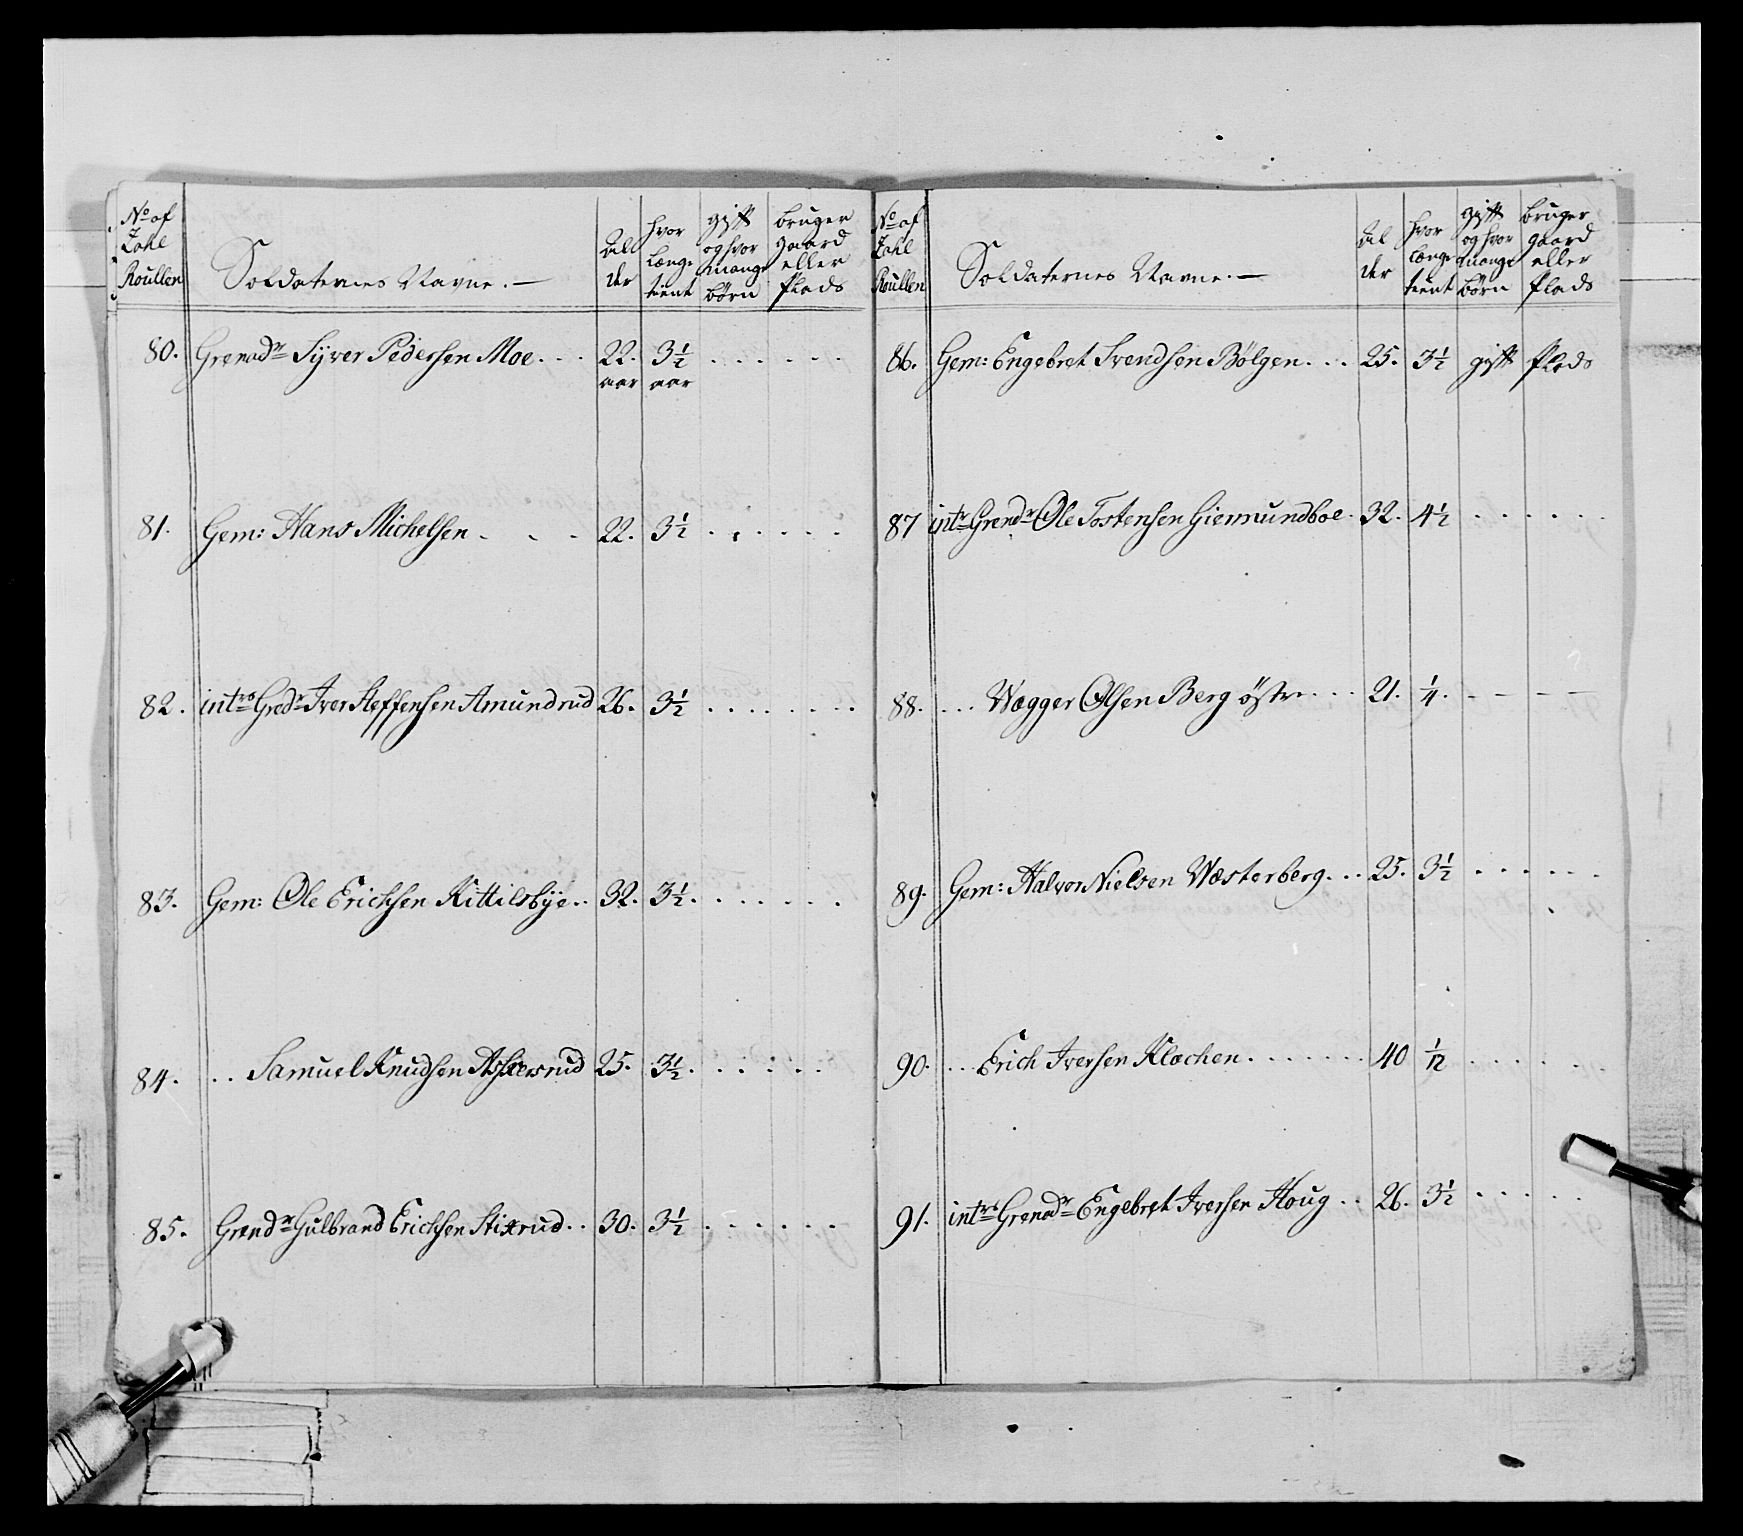 No af Zahl Roullen | Soldaternes Navne. — | Al der | hvor længe tient | gift og hvor mange börn | bruger gaard eller plads
80. Grenadr Syver Pedersen Moe . . . 22. aar 3½ aar . . . . . .
81. Gem: Hans Michelsen . . . 22. 3½ . . . . . .
82. intrs Gredr Iver Steffensen Amundrud 26. 3½ . . . . . . .
83. Gem: Ole Erichsen Kittilsbye . . 32. 3½ . . . . . . .
84. . . Samuel Knudsen 25. 3½ . . . . . .
85. Grendr Gulbrand Erichsen Stixrud . . 30. 3½ . . . . . .
No af Zahl Roullen | Soldaternes Navne. — | Al der | hvor længe tient | gift og hvor mange börn | bruger gaard eller plads
86. Gem: Engebret Svendsen Bølgen . . . 25. 3½ gift plads
87 intr Grendr Ole Tostensen Giermundboe . 32. 4½ . . . . . .
88. . . . Wægger Olsen Berg östr . . . 21. ¼. – – – –
89. Gem: Halvor Nielsen Wæsterberg . . . 25. 3½ . . . . . .
90. . . . Erich Iversen Klochen . . . . . . . 40 1/12 . . . . . .
91. intrs Grenadr Engebret Iversen Houg . . 26. 3½ . . . . .